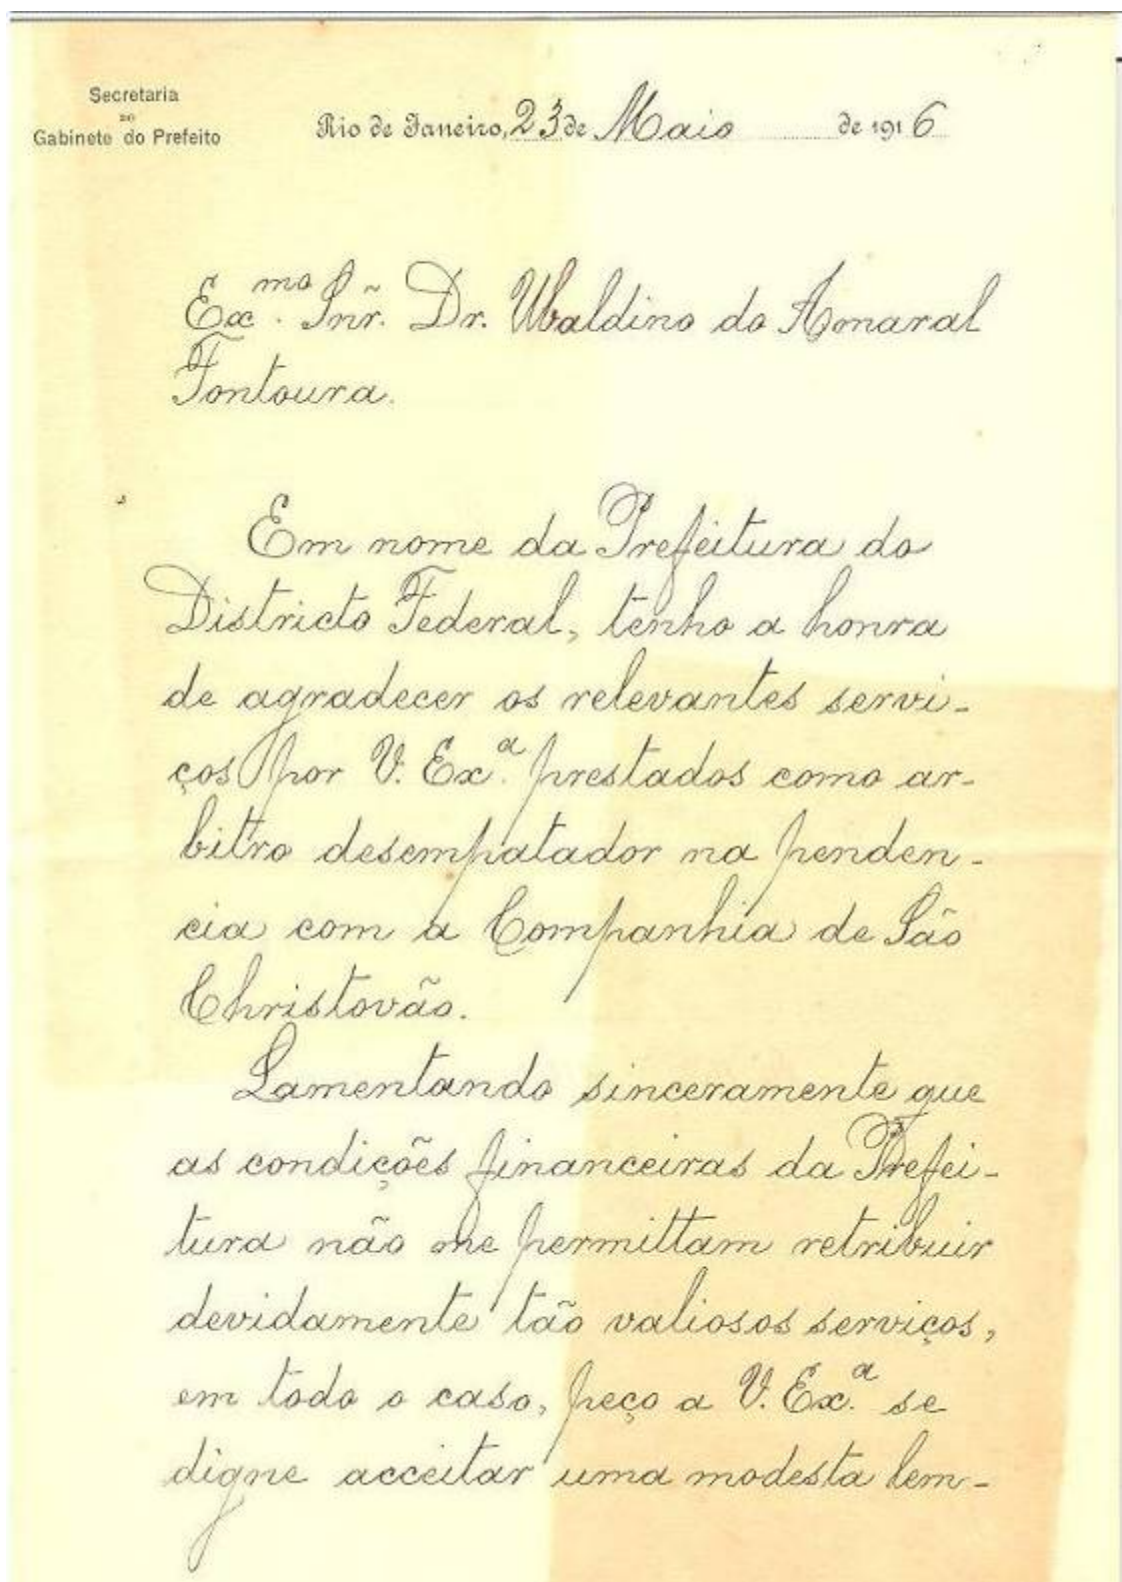 Secretaria
DO
Gabinete do Prefeito
Rio de Janeiro, 23 de Maio de 1916
Exmo. Snr̃. Dr. Ubaldino do Amaral
Fontoura.
Em nome da Prefeitura do
Districto Federal, tenho a honra
de agradecer os relevantes servi-
ços por V. Exa. prestados como ar-
bitro desempatador na penden-
cia com a Companhia de São
Christovão.
Lamentando sinceramente que
as condições financeiras da Prefei-
tura não me permittam retribuir
devidamente tão valiosos serviços,
em todo o caso, peço a V. Exa. se
digne acceitar uma modesta lem-